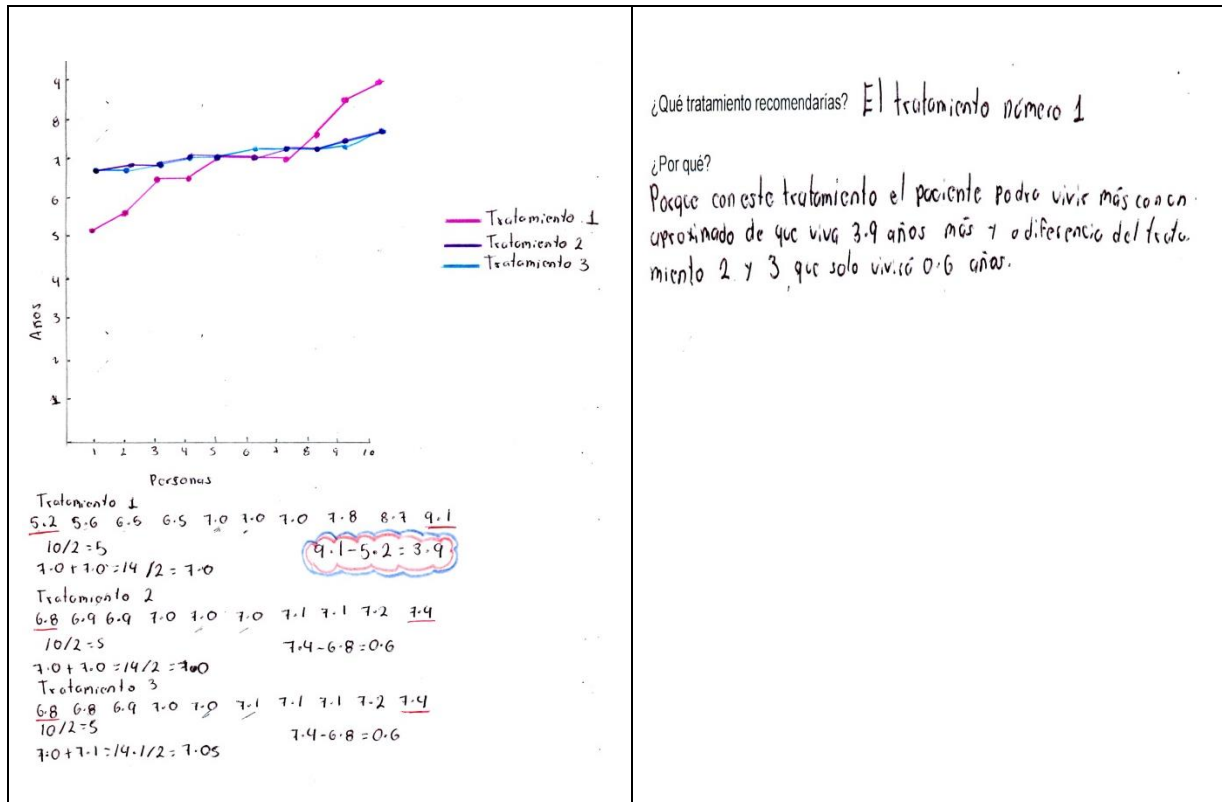 9
8
7
6
5
4
3
2
1
Años
1 2 3 4 5 6 7 8 9 10
Personas
Tratamiento 1
Tratamiento 2
Tratamiento 3
Tratamiento 1
5.2 5.6 6.5 6.5 7.0 7.0 7.0 7.8 8.7 9.1
10/2=5
9.1-5.2=3.9
7.0+7.0=14/2=7.0
Tratamiento 2
6.8 6.9 6.9 7.0 7.0 7.0 7.1 7.1 7.2 7.4
10/2=5
7.4-6.8=0.6
7.0+7.0=14/2=7.0
Tratamiento 3
6.8 6.8 6.9 7.0 7.0 7.1 7.1 7.1 7.2 7.4
10/2=5
7.4-6.8=0.6
7.0+7.1=14.1/2=7.05
¿Qué tratamiento recomendarías? El tratamiento número 1
¿Por qué?
Porque con este tratamiento el paciente podra vivir más con un
aproximado de que viva 3.9 años más y a diferencia del trata.
miento 2 y 3, que solo vivirá 0.6 años.